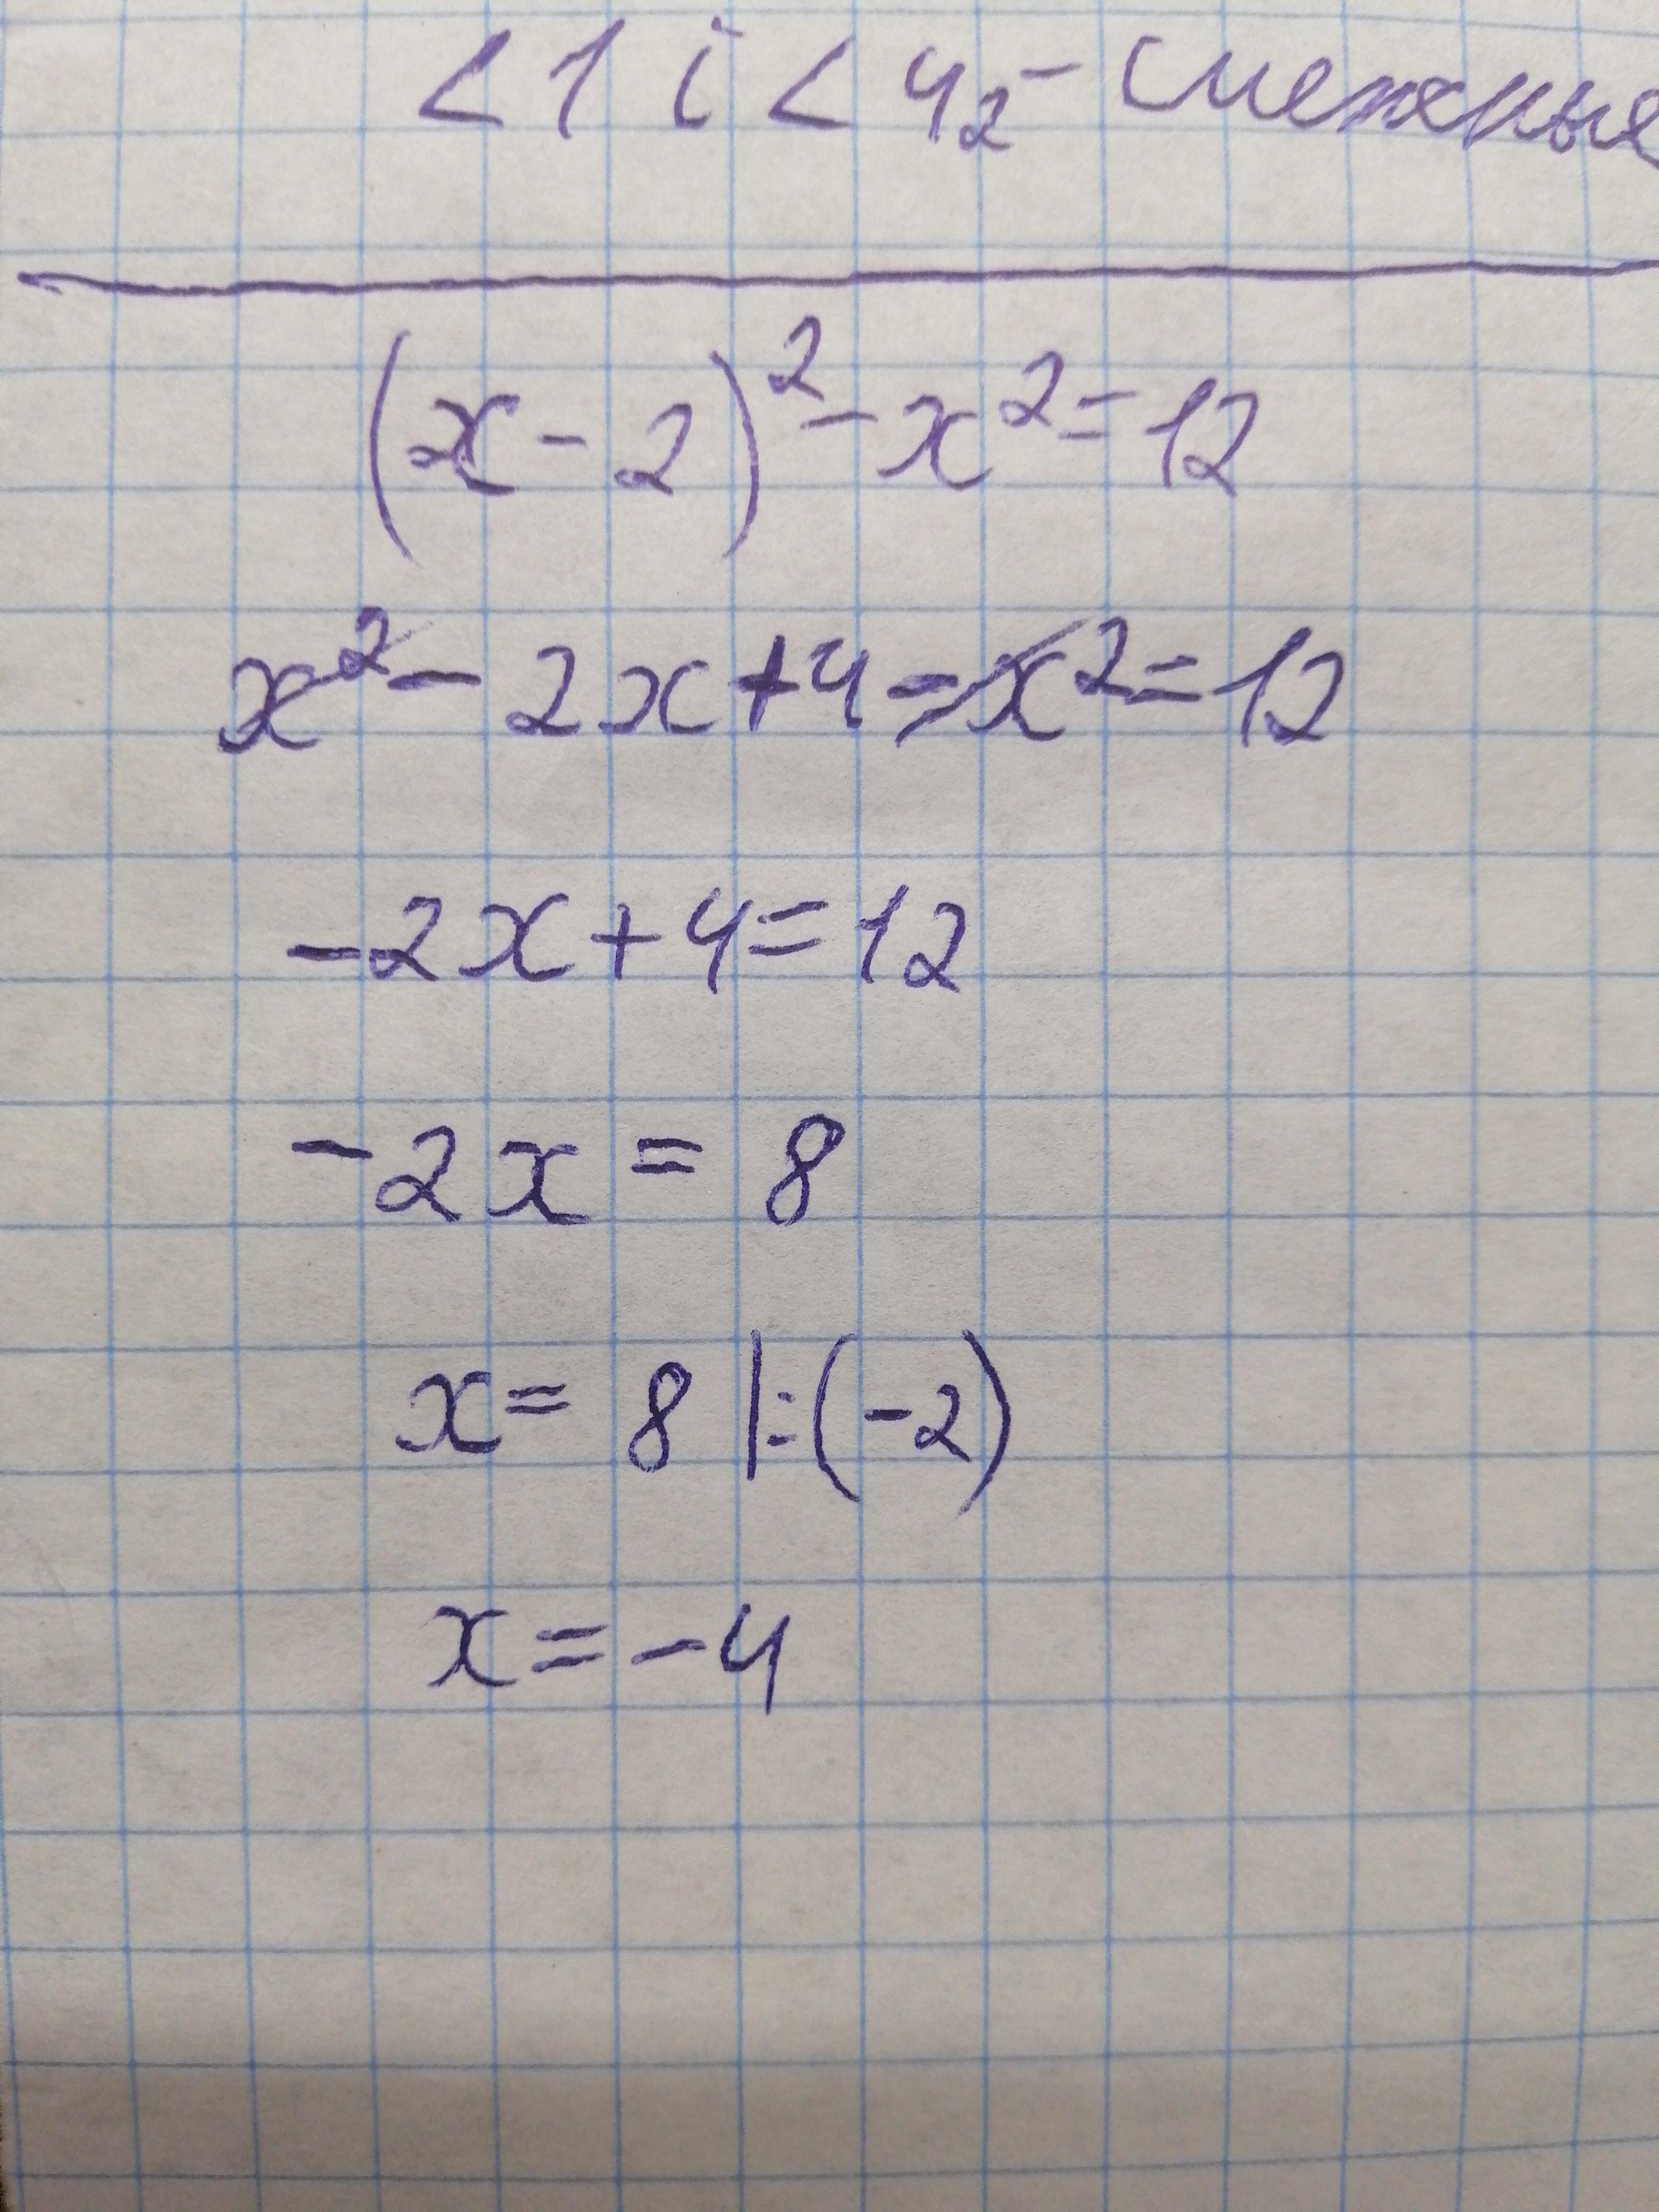 <1 i <4₂ - смежные
(x-2)²-x²=12
x²-2x+4-x²=12
-2x+4=12
-2x=8
x=8|:(-2)
x=-4